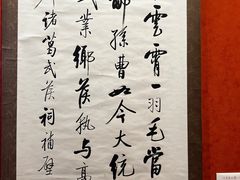 雲霄一羽毛當
鄙孫曹如今大統
業鄉侯孰与高
諸葛武侯祠補壁